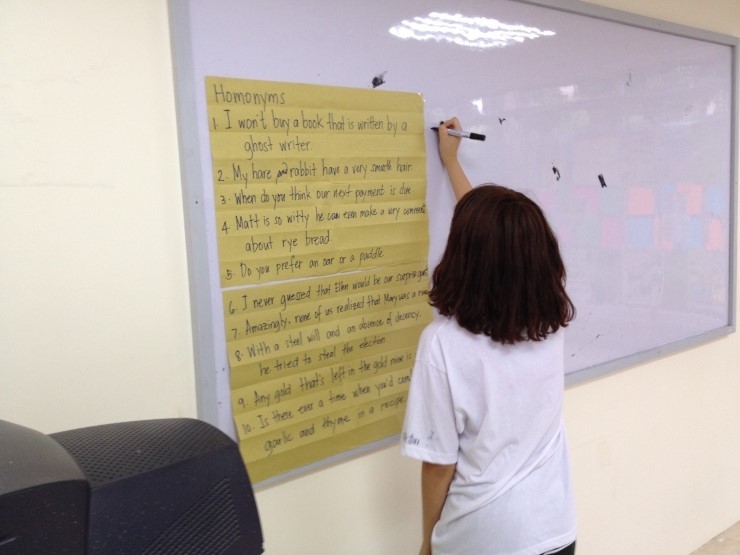 Homonyms
1. I won't buy a book that is written by a
ghost writer.
2. My hare and rabbit have a very smooth hair.
3. When do you think our next payment is due
4. Matt is so witty he can even make a wry comment
about rye bread.
5. Do you prefer an oar or a paddle
6. I never guessed that Ellen would be our surprise guest
7. Amazingly, none of us realized that Mary was a
8. With a steel will and an absence of decency,
he tried to steal the election.
9. Any gold that's left in the gold mine is
10. Is there ever a time when you'd
garlic and thyme in a recipe